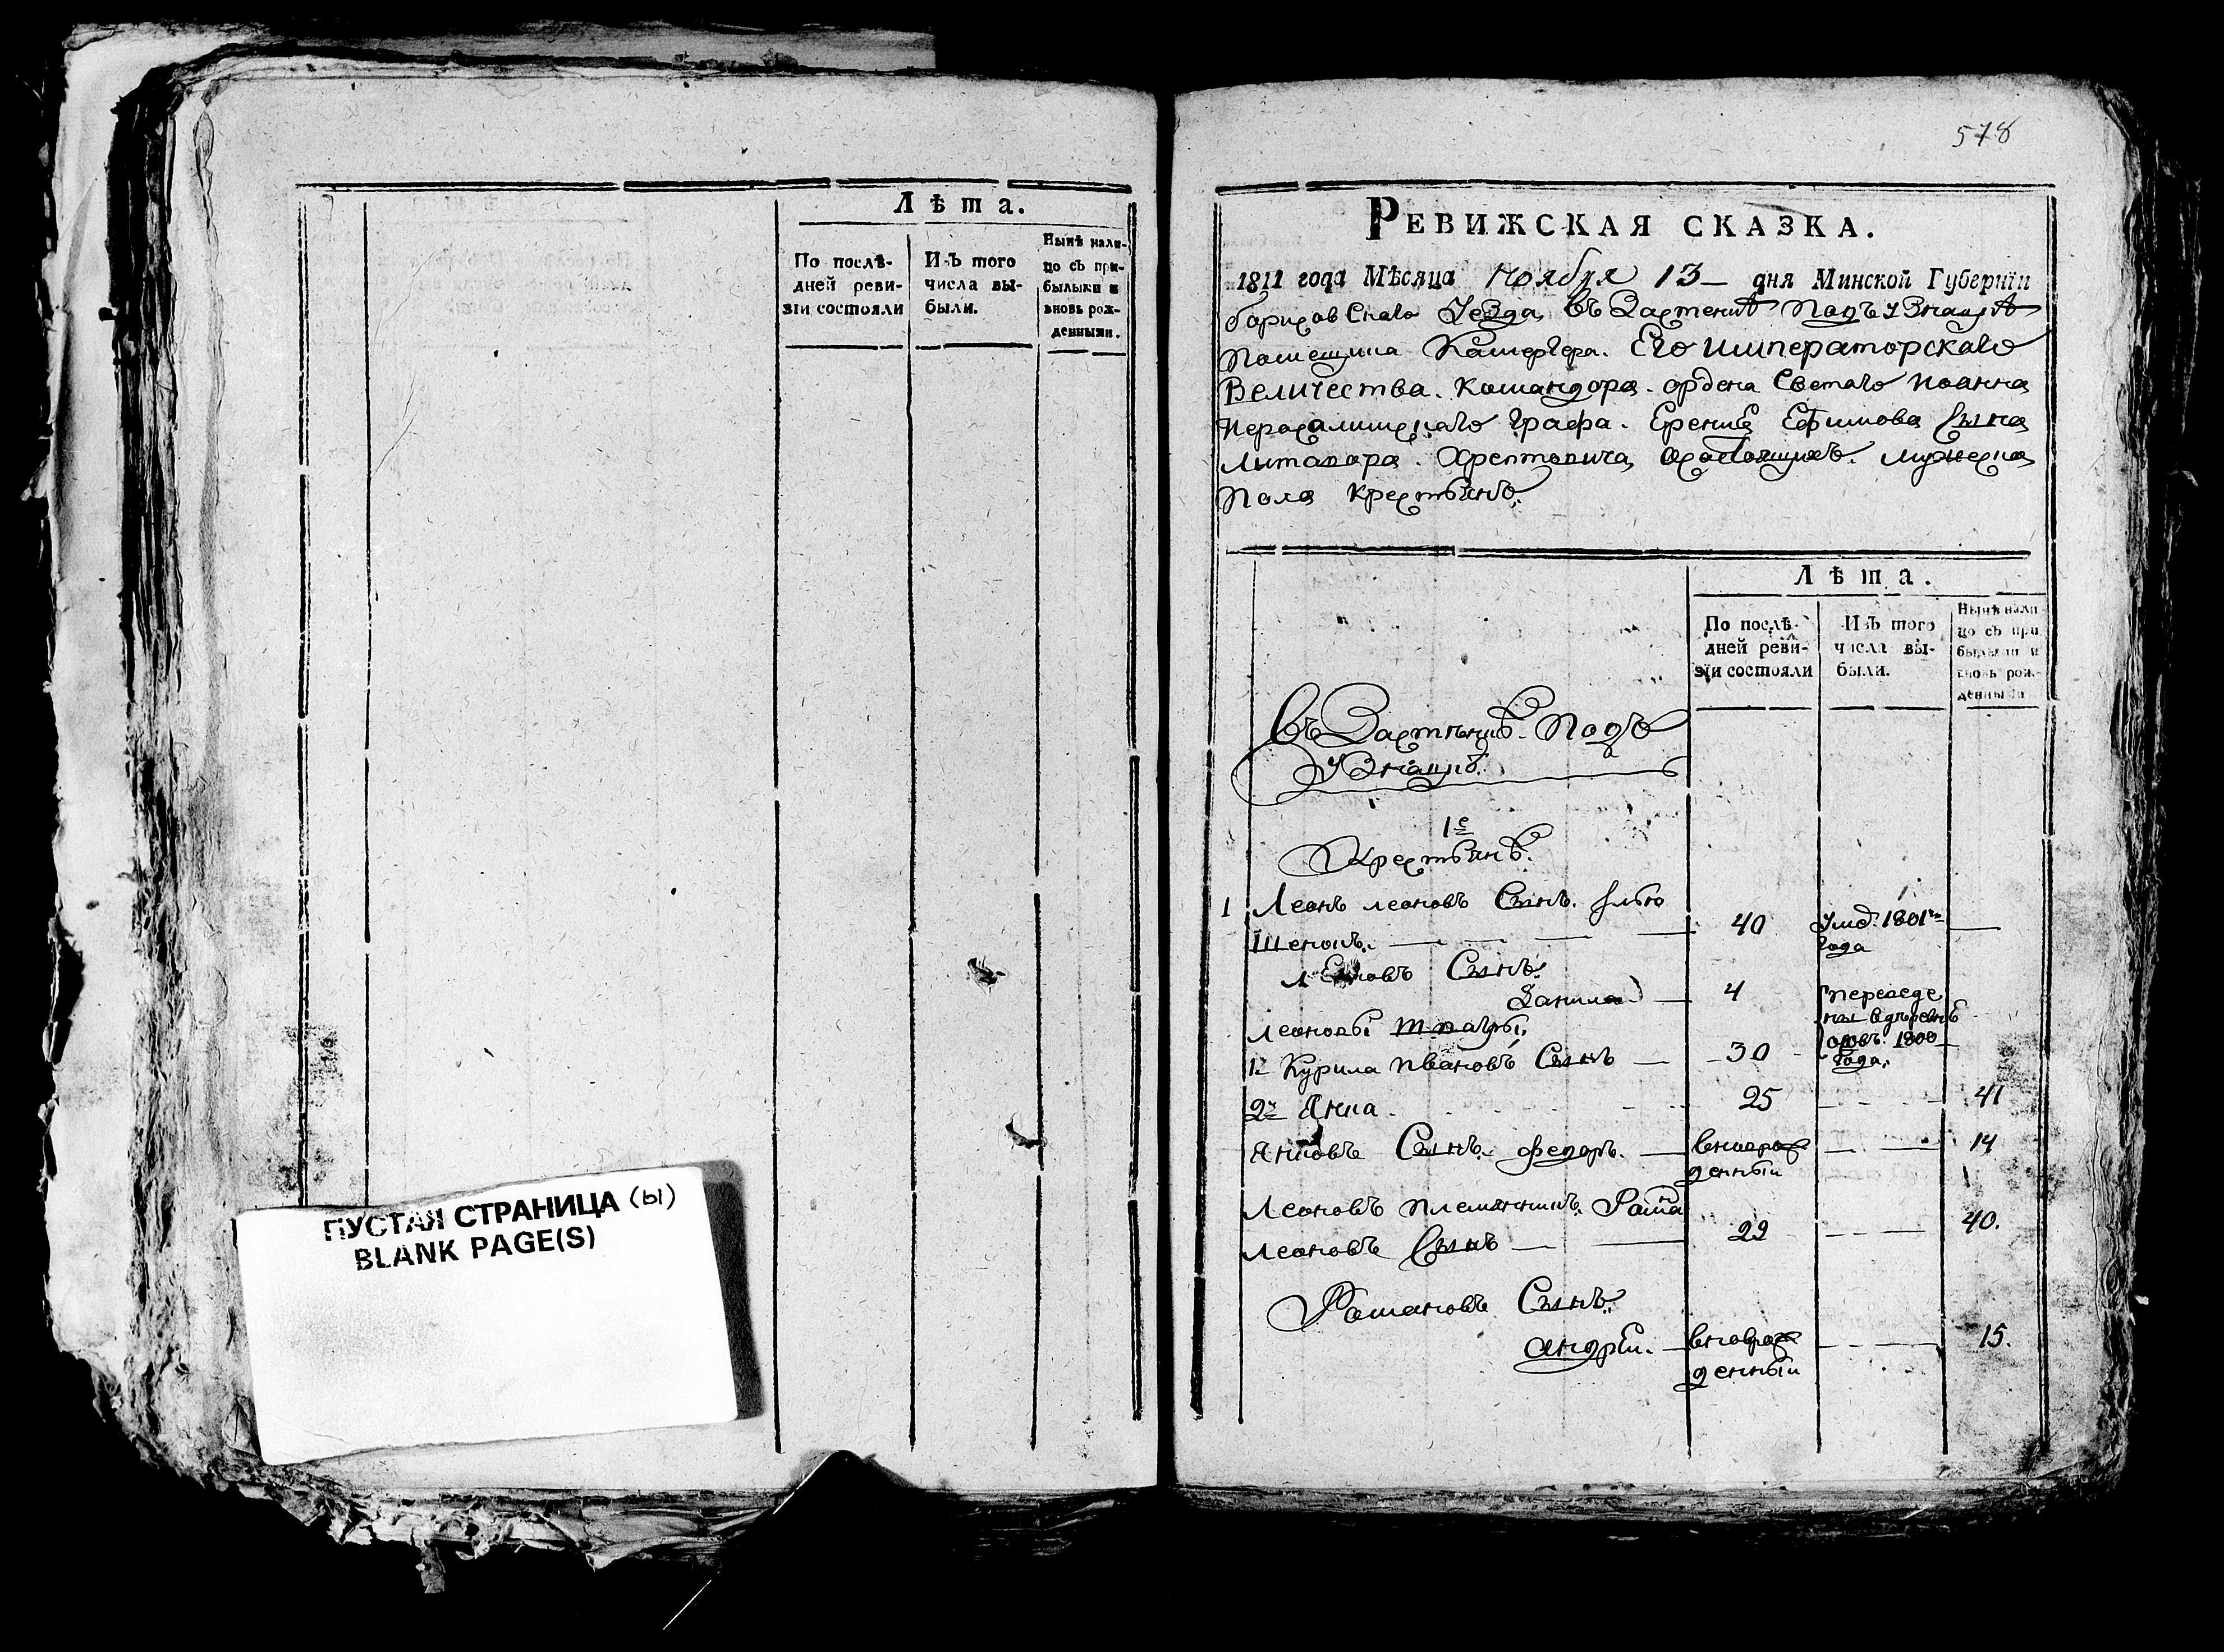 Лѣта.
По послѣ-
дней реви-
зіи состояли
Изъ того
числа вы-
были.
Нынѣ нали-
цо съ при-
былыми и
вновь рож-
денными.
ПУСТАЯ СТРАНИЦА (ы)
BLANK PAGE(S)
578
РЕВИЖСКАЯ СКАЗКА.
1811 года Мѣсяца Ноября 13 дня Минской Губерніи
Уезда въ Застенкѣ Подъ
Помещика Камергера. Его Императорскаго
Величества. Командора. ордена Светаго Иоанна
Графа. Ефимова Сына
Литавора. Хрептовича мужеска
Пола крестьянъ.
Лѣта.
По послѣ-
дней реви-
зіи состояли
Изъ того
числа вы-
были.
Нынѣ нали-
цо съ при
былыми и
вновь рож-
денными
Въ Застенкѣ Подъ
1е
Крестьянѣ.
1 Леонъ леоновъ Сынъ. 40 1801го
года
Сынъ.
Данила 4 переведе
ны
1й Курила Ивановъ Сынъ 30 1800
года.
2й Янка 25 41
Янковъ Сынъ. федоръ. вновро
денный 14
Леоновъ племянникъ. Рома
леоновъ Сынъ 22 40.
Романовъ Сынъ.
андрей. вновро
денный 15.